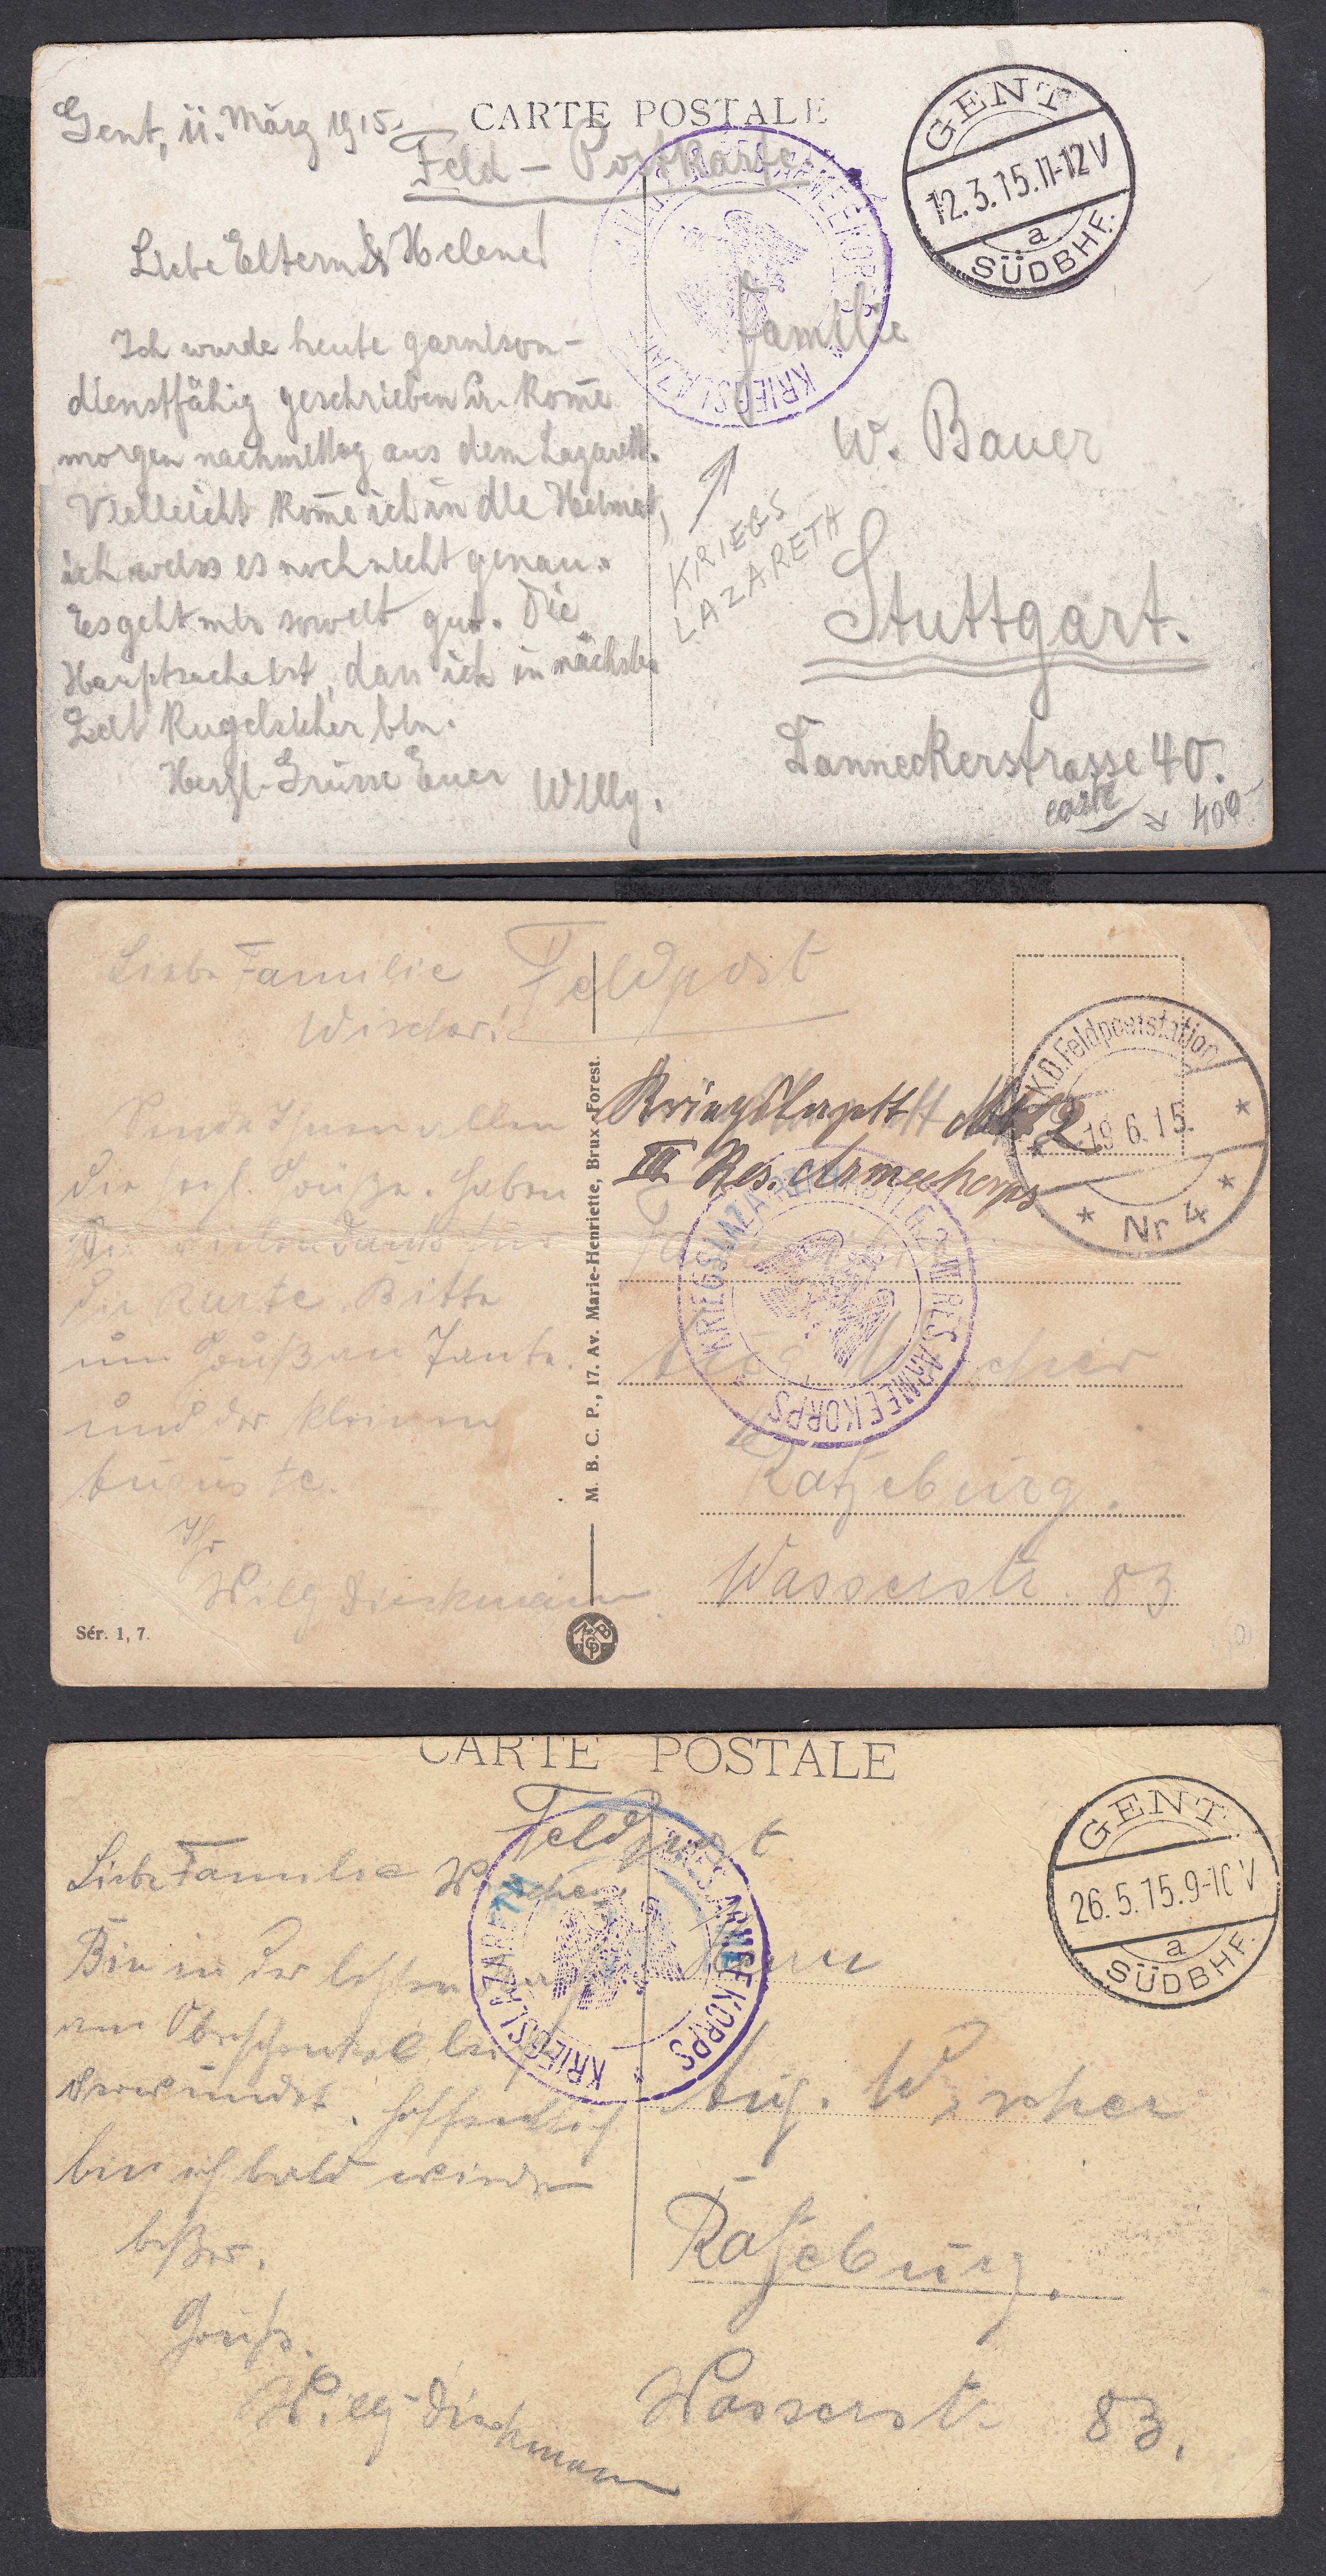 CARTE POSTALE
Gent, 11. März 1915.
Feld-Postkarte.
GENT
12.3.15.11-12V
a
SÜDBHF.
ARMEEKORPS
KRIEGSLAZA
Liebe Eltern & Helene!
Ich wurde heute garnison-
dienstfähig geschrieben u. kom̄e
morgen nachmittag aus dem Lazarett.
Vielleicht kom̄e ich in die Heimat,
ich weiss es noch nicht genau.
Es geht mir soweit gut. Die
Hauptsache ist, dass ich in nächster
Zeit kugelsicher bin.
Herzl. Grüsse Euer Willy.
Familie
W. Bauer
Stuttgart.
Danneckerstrasse 40.
KRIEGS
LAZARETH
carte
400-
Feldpost
Liebe Familie
Wischer!
Sende Ihnen allen
die herzl. Grüße. Haben
Sie
die Karte. Bitte
um Grüße an Tante.
und der kleinen
Auguste.
Ihr
Willy Dieckmann
Sér. 1, 7.
M. B. C. P., 17. Av. Marie-Henriette, Brux.-Forest.
K.D. Feldpoststation
19 6. 15.
Nr 4
Kriegslazarett Abt 2
III Res. Armeekorps
KRIEGSLAZARETT 2 III RES. ARMEEKORPS
Aug Wischer
Ratzeburg.
Wasserstr. 83
CARTE POSTALE
Feldpost
GENT
26.5.15.9-10V
a
SÜDBHF.
KRIEGSLAZARETT RES. ARMEEKORPS
Liebe Familie Wischer
Bin in der letzten
am Oberschenkel leicht
verwundet. Hoffentlich
bin ich bald wieder
besser.
Gruß.
Willy Dieckmann
Herrn
Aug. Wischer
Ratzeburg.
Wasserstr. 83.